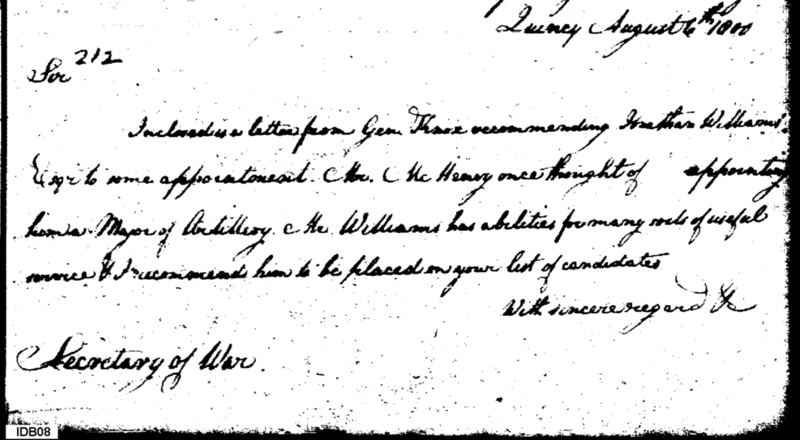 Quincy August 6th 1800
Sir 212
Inclosed is a letter from Gen. Knox recommending Jonathan Williams
Esqr to some appointment. Mr. McHenry once thought of appointing
him a Major of Artillery. Mr Williams has abilities for many sorts of useful
service & I recommend him to be placed on your list of candidates
With sincere regard &c
Secretary of War.
IDB08